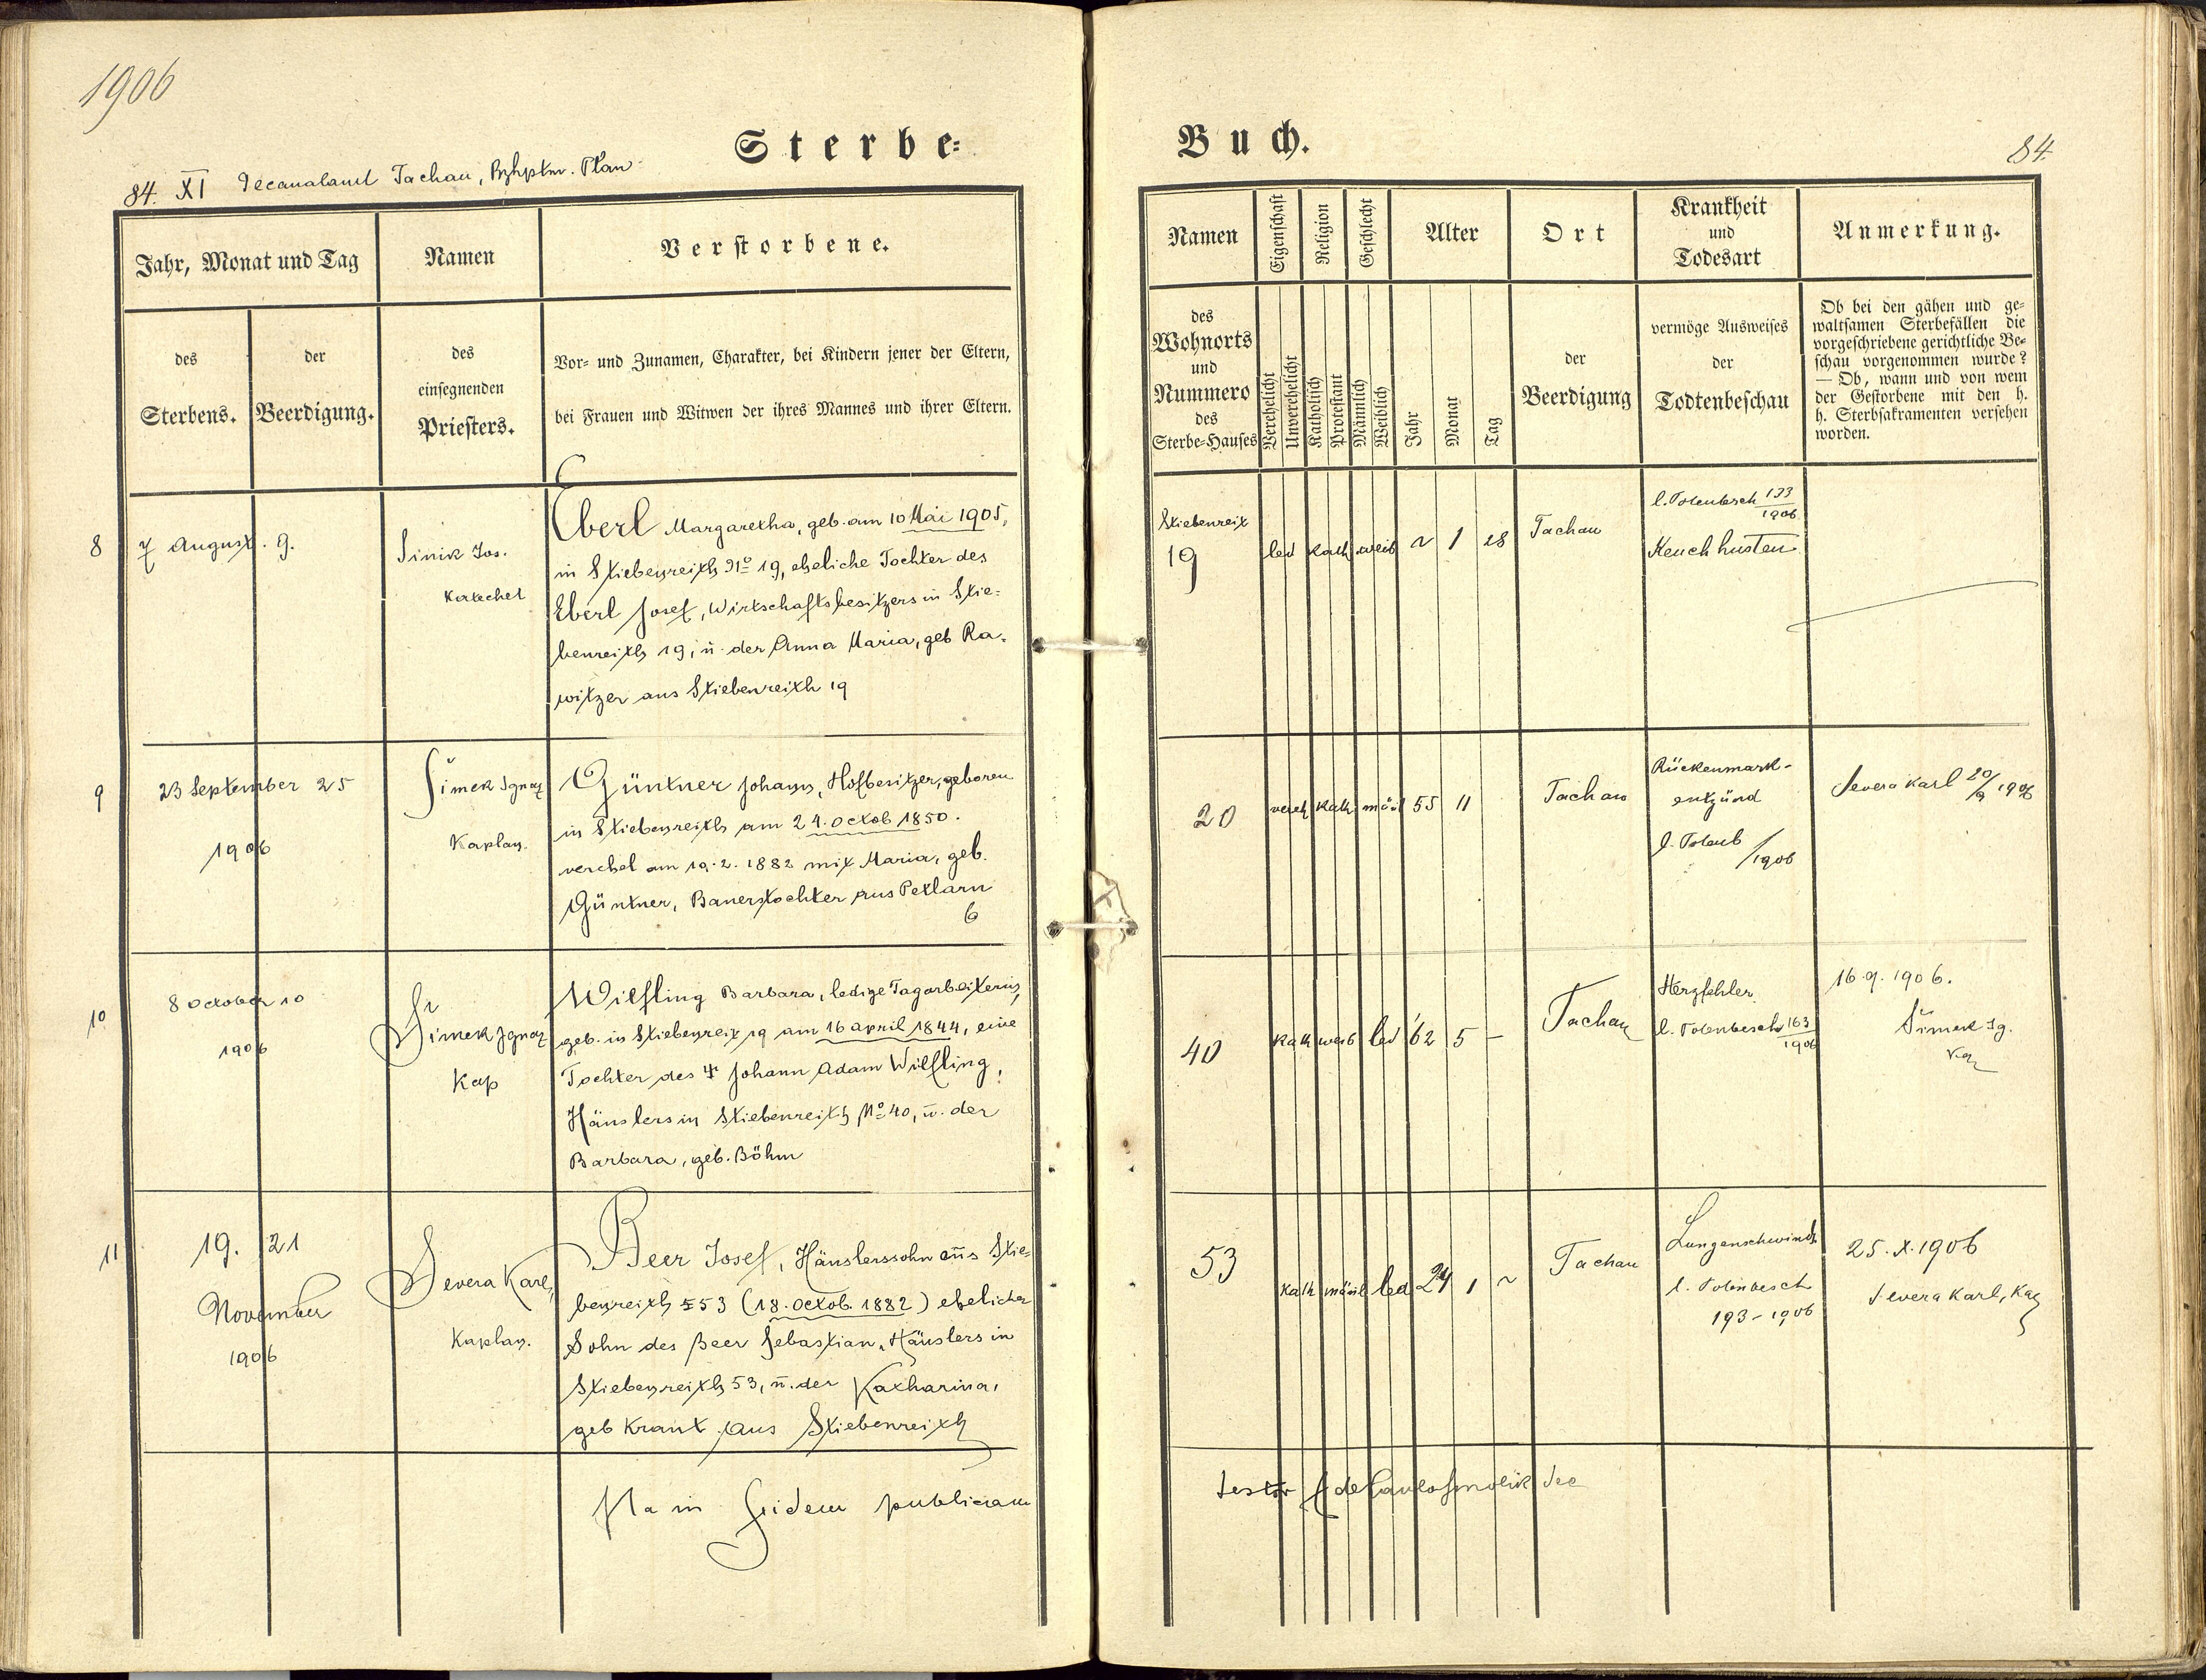 1906
Sterbe-
84. XI Decanalamt Tachau, Bzhptm. Plan
Jahr, Monat und Tag
Namen
Verstorbene.
des
Sterbens.
der
Beerdigung.
des
einsegnenden
Priesters.
Vor- und Zunamen, Charakter, bei Kindern jener der Eltern,
bei Frauen und Witwen der ihres Mannes und ihrer Eltern.
8
7 August. 9.
Sinik Jos.
Katechet
Eberl Margaretha, geb. am 10 Mai 1905,
in Stiebenreith No 19, eheliche Tochter des
Eberl Josef, Wirtschaftsbesitzers in Stie-
benreith 19, u. der Anna Maria, geb Ra-
witzer aus Stiebenreith 19
9
23 September 25
1906
Šimek Ignaz
Kaplan.
Güntner Johann, Hofbesitzer, geboren
in Stiebenreith am 24. Octob 1850.
verehel am 19.2.1882 mit Maria, geb.
Güntner, Bauerstochter aus Petlarn
6
10
8 October 10
1906
Šimek Ignaz
Kap
Wilfling Barbara, ledige Tagarbeiterin,
geb. in Stiebenreit 19 am 16 april 1844, eine
Tochter des † Johann Adam Wilfling,
Häuslers in Stiebenreith No 40, u. der
Barbara, geb. Böhm
11
19. 21
November
1906
Severa Karl,
Kaplan.
Beer Josef, Häuslerssohn aus Stie-
benreith 53 (18. Octob. 1882) ehelicher
Sohn des Beer Sebastian, Häuslers in
Stiebenreith 53, u. der Katharina,
geb Kraut aus Stiebenreith
Ita in fidem publicam
Buch.
84.
Namen
Eigenschaft
Religion
Geschlecht
Alter
Ort
Krankheit
und
Todesart
Anmerkung.
des
Wohnorts
und
Nummero
des
Sterbe-Hauses
Verehelicht
Unverehelicht
Katholisch
Protestant
Männlich
Weiblich
Jahr
Monat
Tag
der
Beerdigung
vermöge Ausweises
der
Todtenbeschau
Ob bei den gähen und ge-
waltsamen Sterbefällen die
vorgeschriebene gerichtliche Be-
schau vorgenommen wurde?
— Ob, wann und von wem
der Gestorbene mit den h.
h. Sterbsakramenten versehen
worden.
Stiebenreit
19
led kath weib ~ 1 28
Tachau
l. Totenbesch 133/1906
Keuchhusten
20
vereh kath männl 55 11
Tachau
Rückenmark-
entzünd
l. Totenb
/1906
Severa Karl 20/9 1906
40
kath weib led 62 5 –
Tachau
Herzfehler
l. Totenbesch 163/1906
16.9.1906.
Šimek Ig.
Kap
53
kath männl led 24 1 ~
Tachau
Lungenschwinds
l. Totenbesch
193-1906
25. X. 1906
Severa Karl, Kap